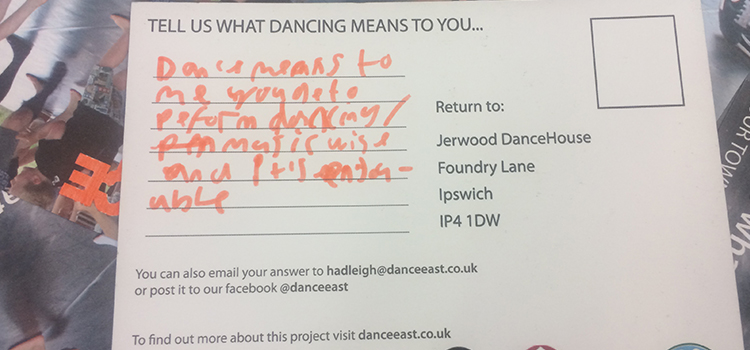 TELL US WHAT DANCING MEANS TO YOU...
Dance means to
me you geto
perform dancing/
musicwise
and it's enjoy-
able
Return to:
Jerwood DanceHouse
Foundry Lane
Ipswich
IP4 1DW
You can also email your answer to hadleigh@danceeast.co.uk
or post it to our facebook @danceeast
To find out more about this project visit danceeast.co.uk